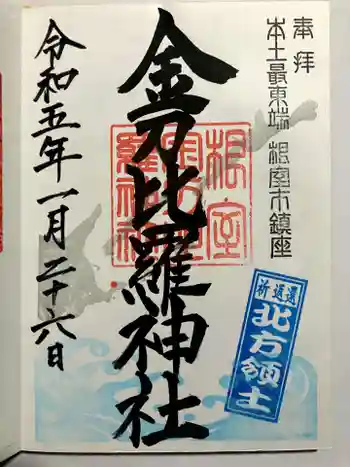 奉拝
本土最東端 根室市鎮座
金刀比羅神社
根室
金刀比
羅神社
令和五年一月二十六日
祈返還
北方領土